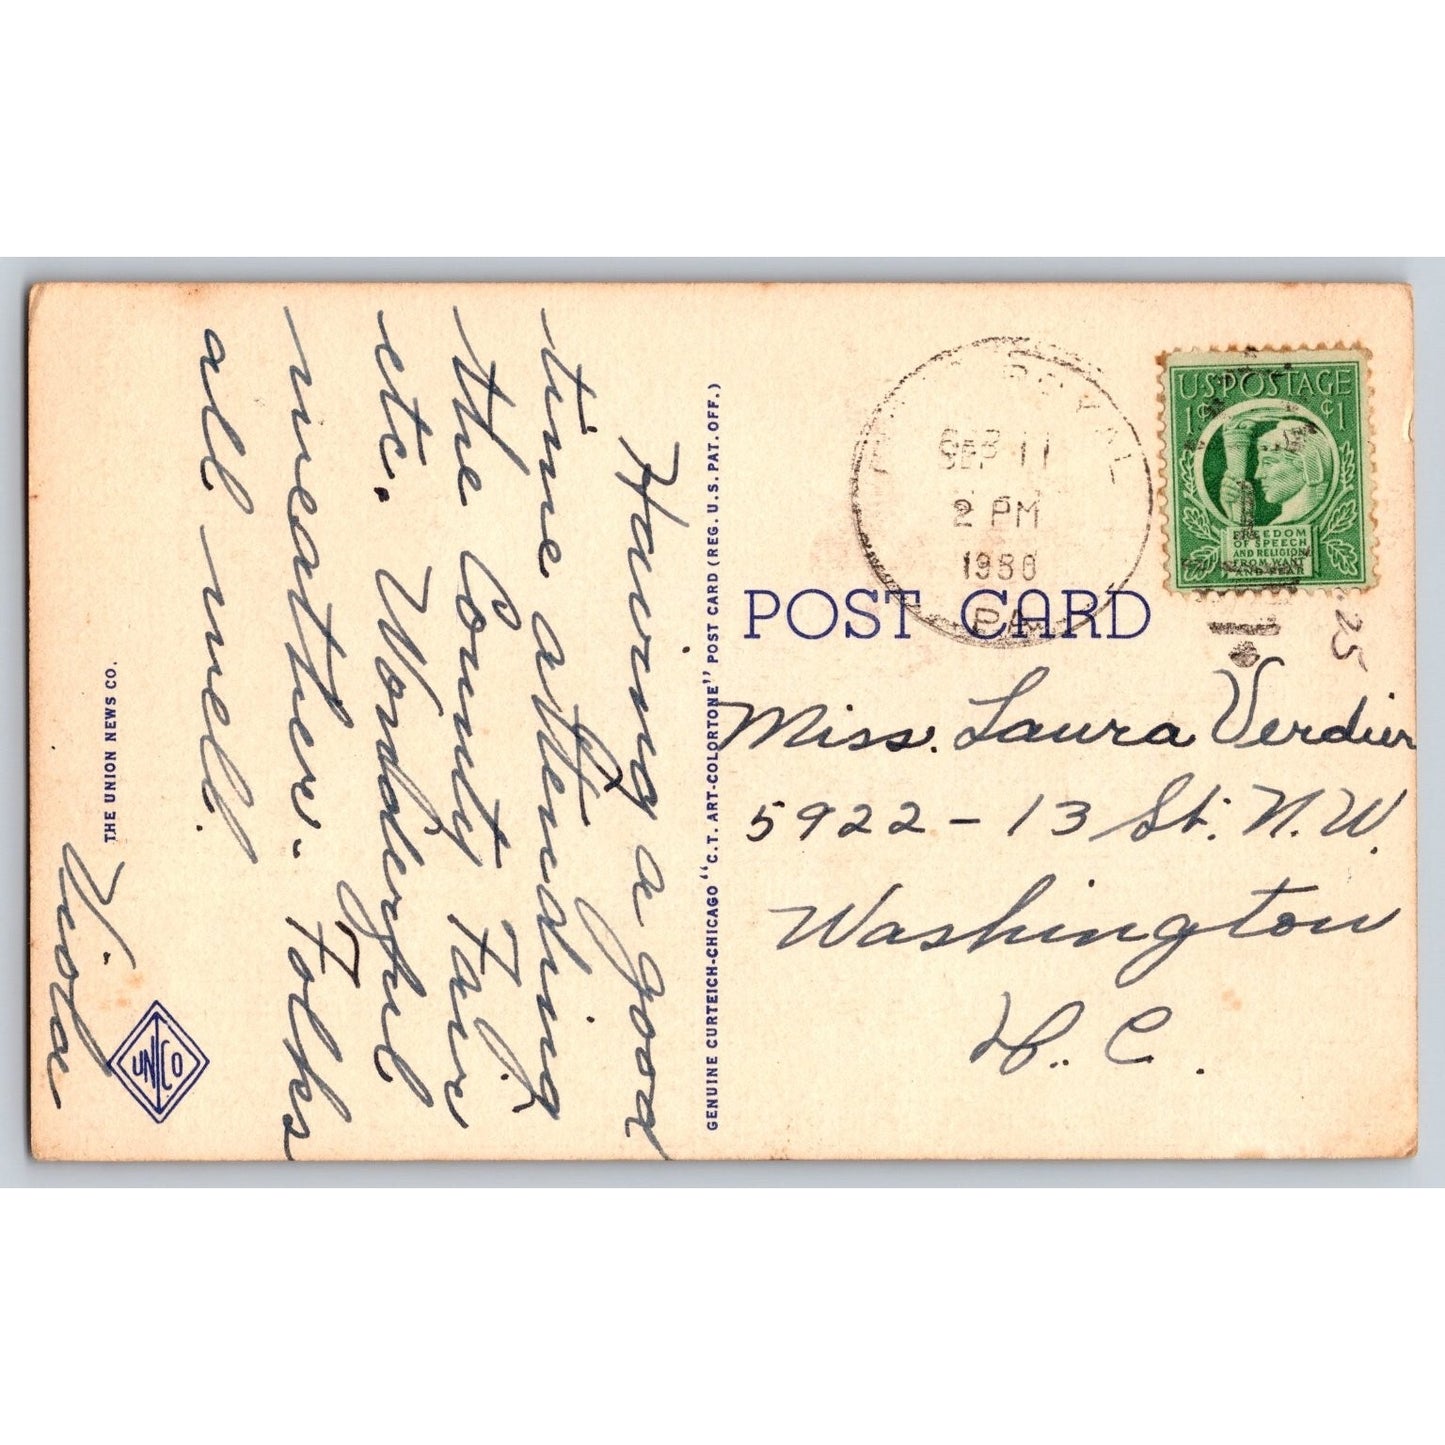 Having a good
time attending
the County Fair,
etc. Wonderful
weather. Folks
all well.
Viola
THE UNION NEWS CO.
UN CO
GENUINE CURTEICH-CHICAGO "C.T. ART-COLORTONE" POST CARD (REG. U.S. PAT. OFF.)
ROYAL
SEP 11
2 PM
1950
PA.
U.S. POSTAGE
1¢ ¢1
FREEDOM
OF SPEECH
AND RELIGION
FROM WANT
AND FEAR
.25
POST CARD
Miss. Laura Verdier
5922 - 13 St. N.W.
Washington
D. C.